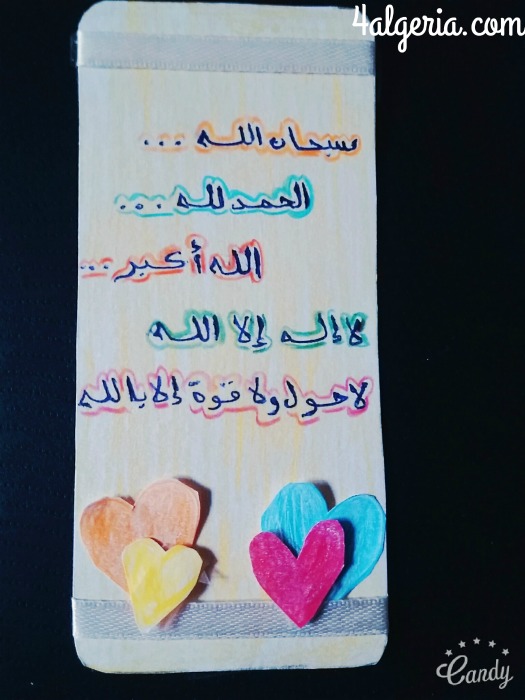 4algeria.com
سبحان الله ...
الحمد لله ...
الله أكبر ...
لا إله إلا الله
لا حول ولا قوة إلا بالله
Candy